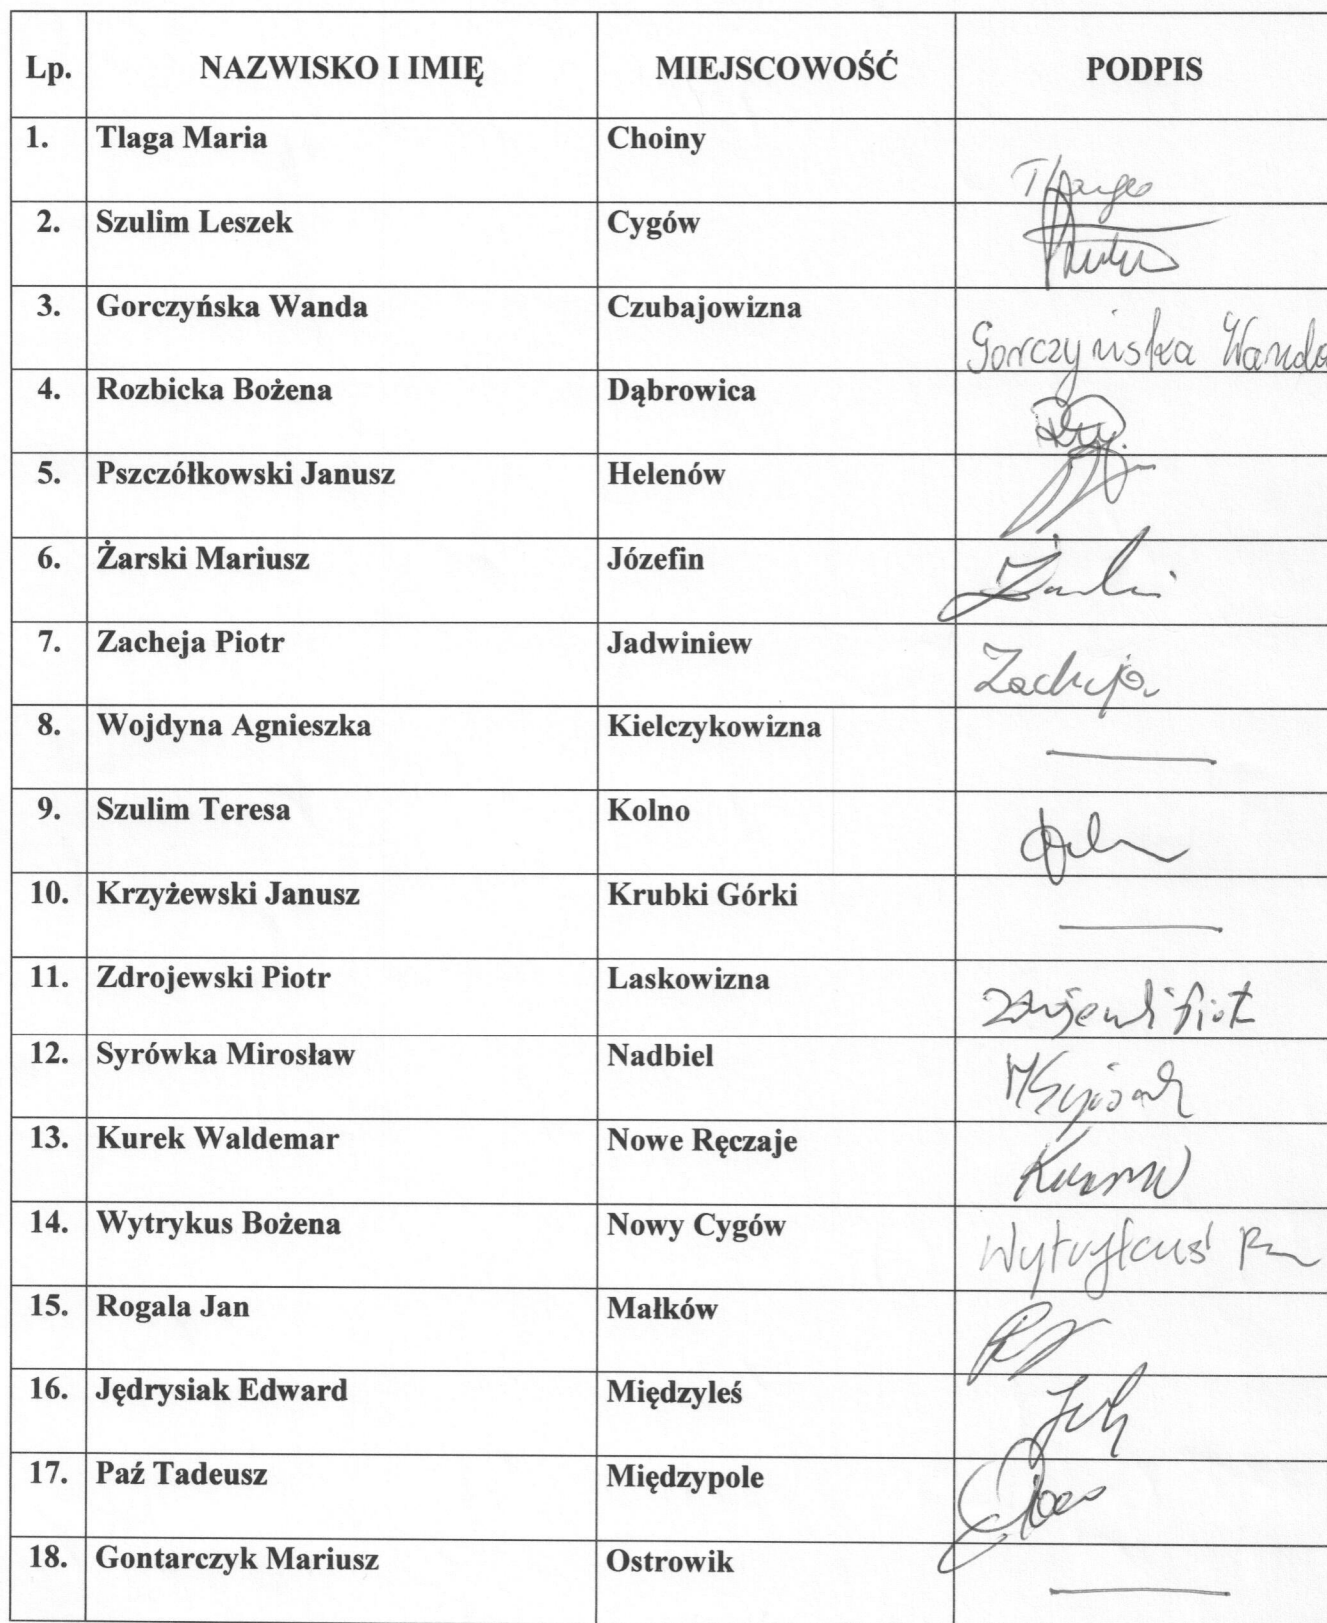 Lp. NAZWISKO I IMIĘ MIEJSCOWOŚĆ PODPIS
1. Tlaga Maria Choiny
2. Szulim Leszek Cygów
3. Gorczyńska Wanda Czubajowizna Gorczyńska Wanda
4. Rozbicka Bożena Dąbrowica
5. Pszczółkowski Janusz Helenów
6. Żarski Mariusz Józefin
7. Zacheja Piotr Jadwiniew Zacheja
8. Wojdyna Agnieszka Kielczykowizna
9. Szulim Teresa Kolno
10. Krzyżewski Janusz Krubki Górki
11. Zdrojewski Piotr Laskowizna
12. Syrówka Mirosław Nadbiel
13. Kurek Waldemar Nowe Ręczaje
14. Wytrykus Bożena Nowy Cygów
15. Rogala Jan Małków
16. Jędrysiak Edward Międzyleś
17. Paź Tadeusz Międzypole
18. Gontarczyk Mariusz Ostrowik